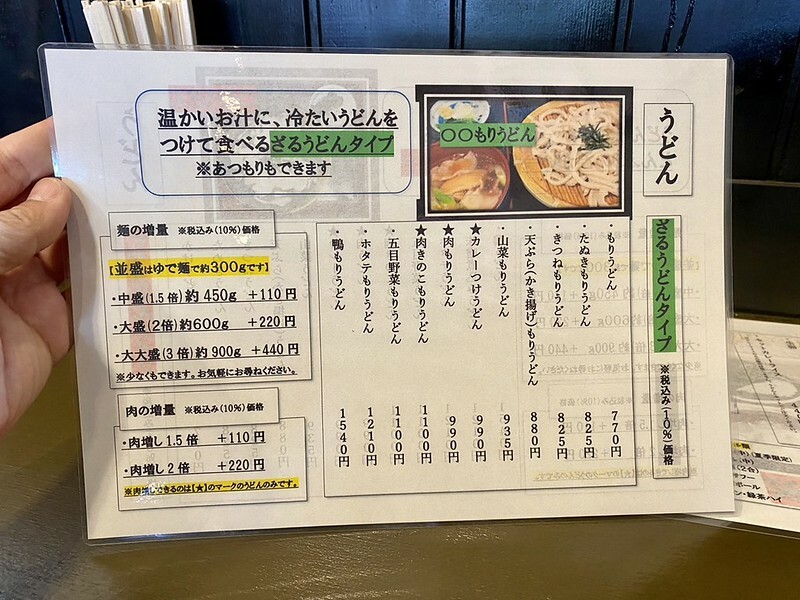 うどん
ざるうどんタイプ ※税込み(10%)価格
〇〇もりうどん
温かいお汁に、冷たいうどんを
つけて食べるざるうどんタイプ
※あつもりもできます
・もりうどん 770円
・たぬきもりうどん 825円
・きつねもりうどん 825円
・天ぷら(かき揚げ)もりうどん 880円
・山菜もりうどん 935円
★カレーつけうどん 990円
★肉もりうどん 990円
★肉きのこもりうどん 1100円
・五目野菜もりうどん 1100円
・ホタテもりうどん 1210円
・鴨もりうどん 1540円
麺の増量 ※税込み(10%)価格
【並盛はゆで麺で約300gです】
・中盛(1.5倍)約450g +110円
・大盛(2倍)約600g +220円
・大大盛(3倍)約900g +440円
※少なくもできます。お気軽にお尋ねください。
肉の増量 ※税込み(10%)価格
・肉増し1.5倍 +110円
・肉増し2倍 +220円
※肉増しできるのは【★】のマークのうどんのみです。
(夏季限定)
(2合)
フー
ボール
ン・緑茶ハイ